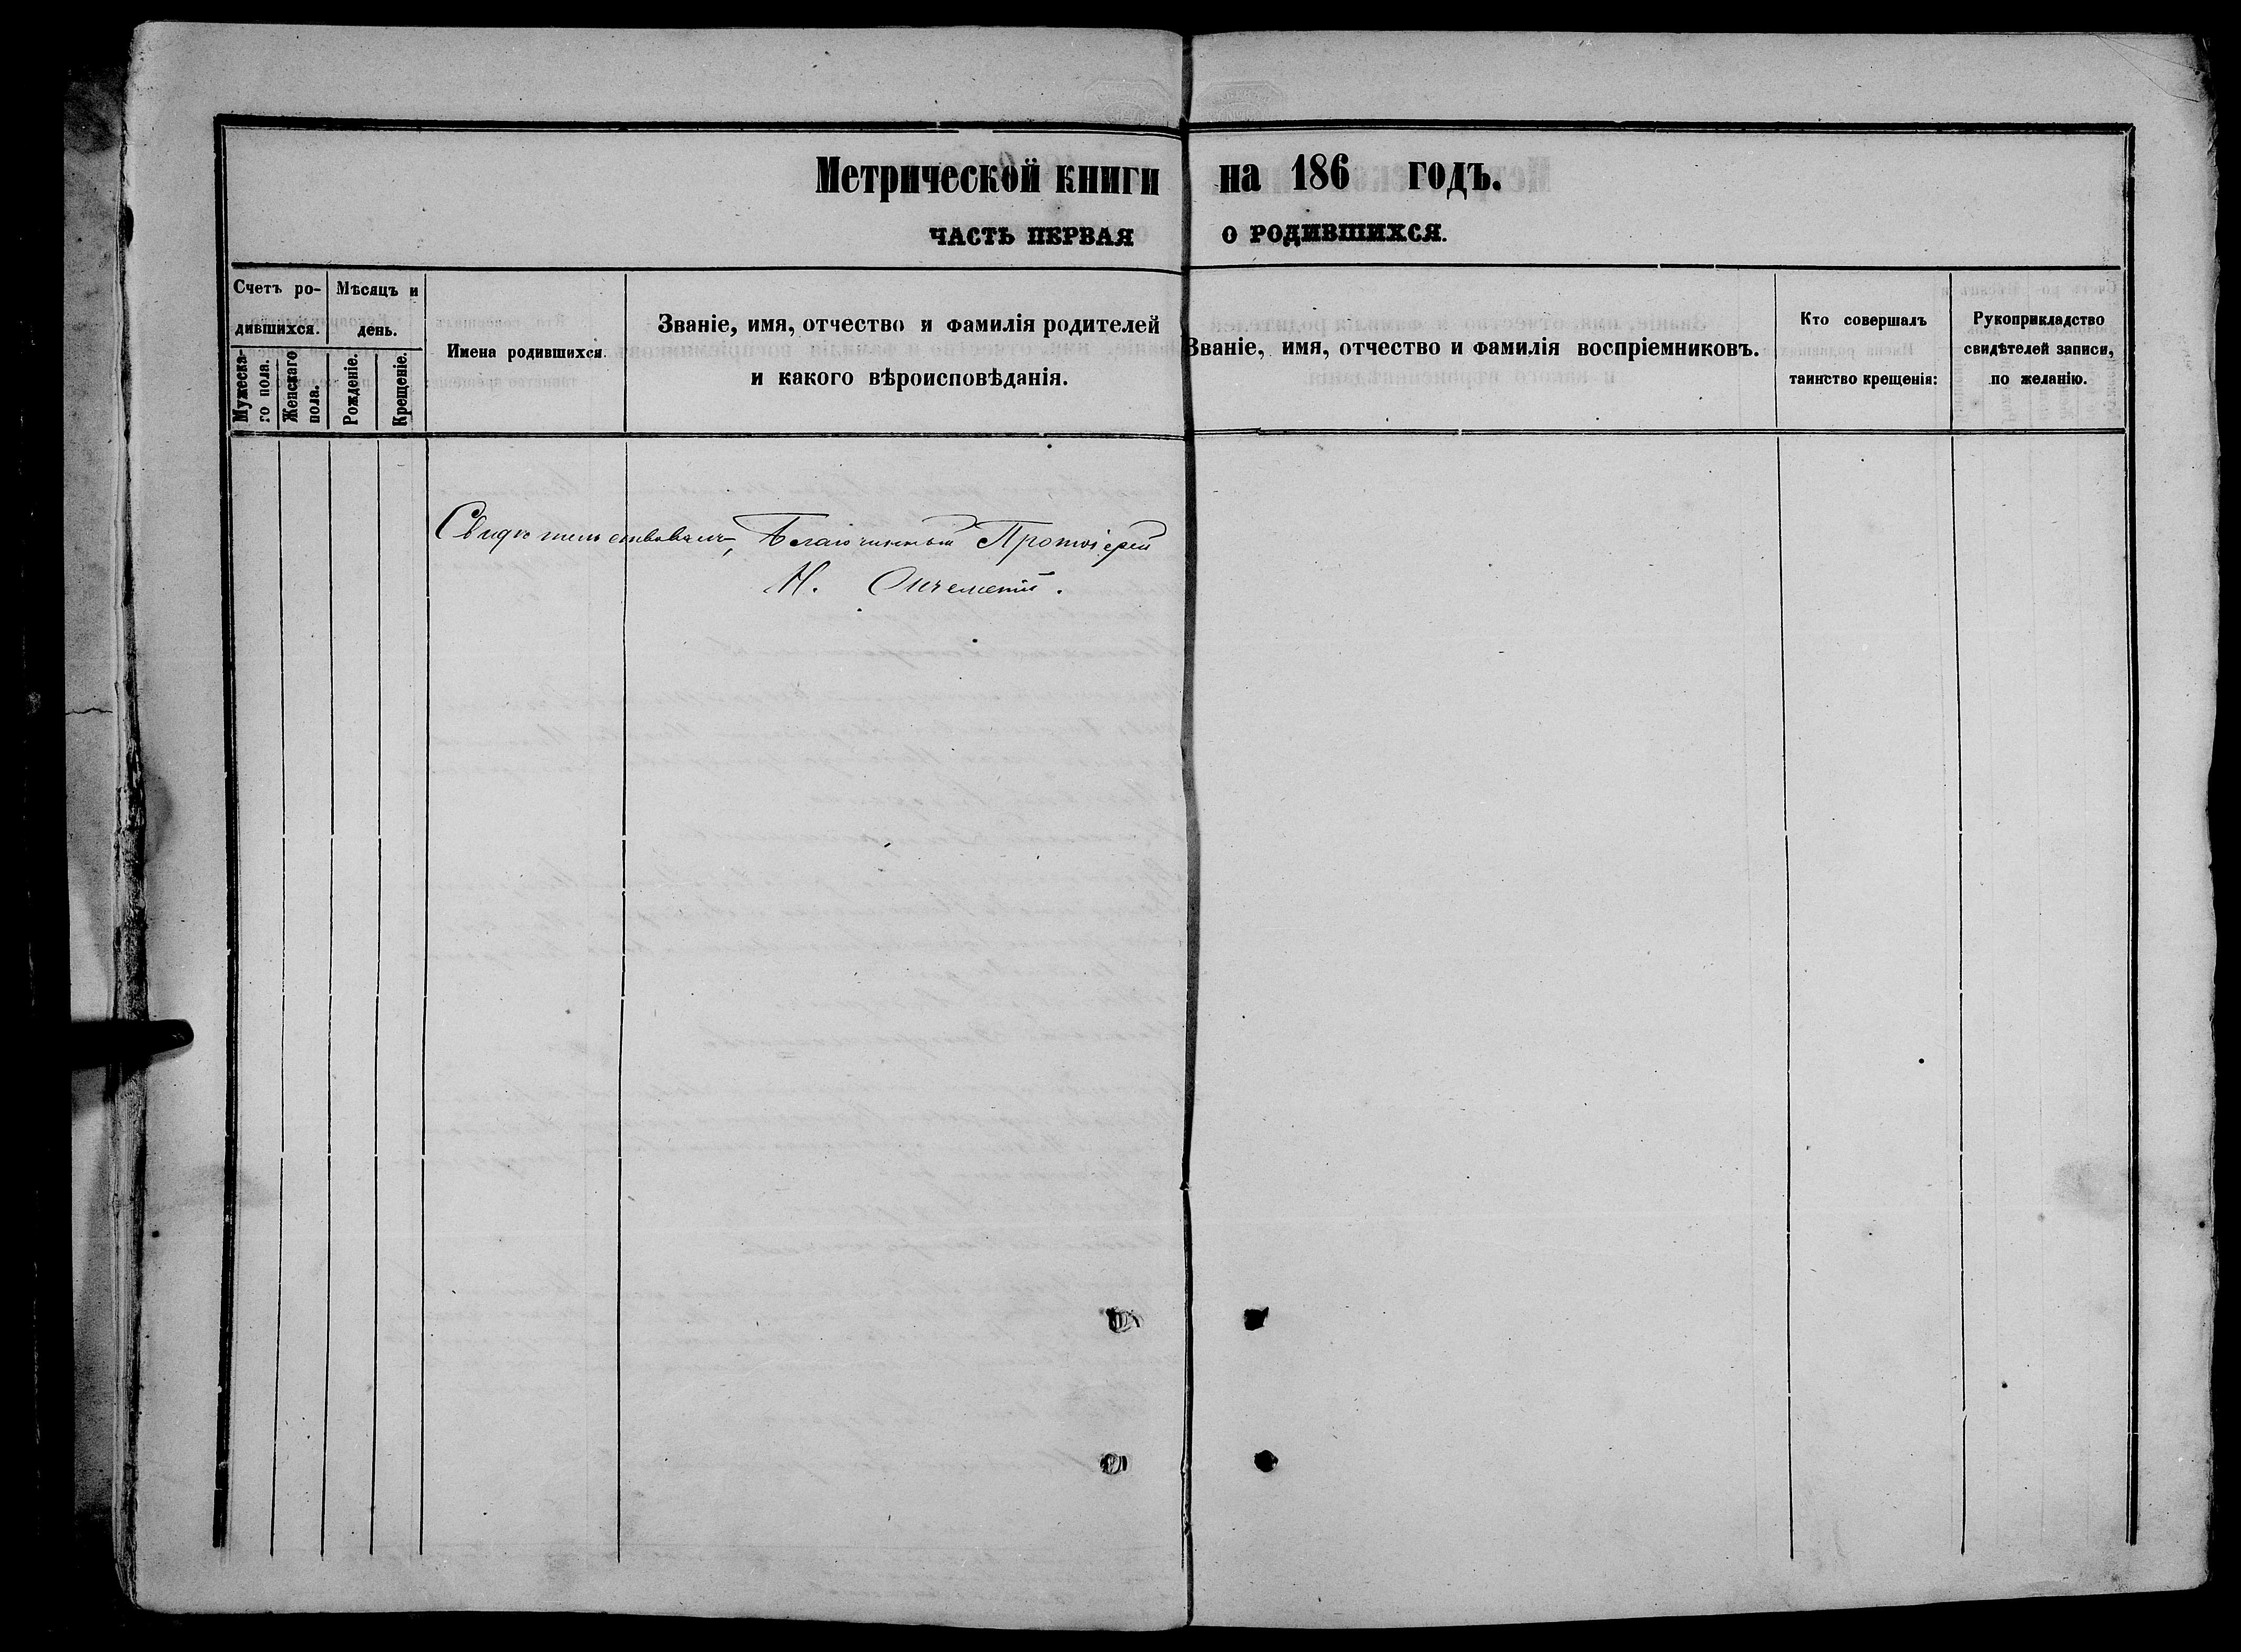 Метрической книги на 186 годъ.
ЧАСТЬ ПЕРВАЯ о РОДИВШИХСЯ.
Счетъ ро-
дившихся.
Мужеска-
го пола.
Женскаго
пола.
Мѣсяцъ и
день.
Рожденіе.
Крещеніе.
Имена родившихся.
Званіе, имя, отчество и фамилія родителей
и какого вѣроисповѣданія.
Званіе, имя, отчество и фамилія воспріемниковъ.
Кто совершалъ
таинство крещенія:
Рукоприкладство
свидѣтелей записи,
по желанію.
Свидѣтельствовалъ, Благочинный Протоіерей
Н.